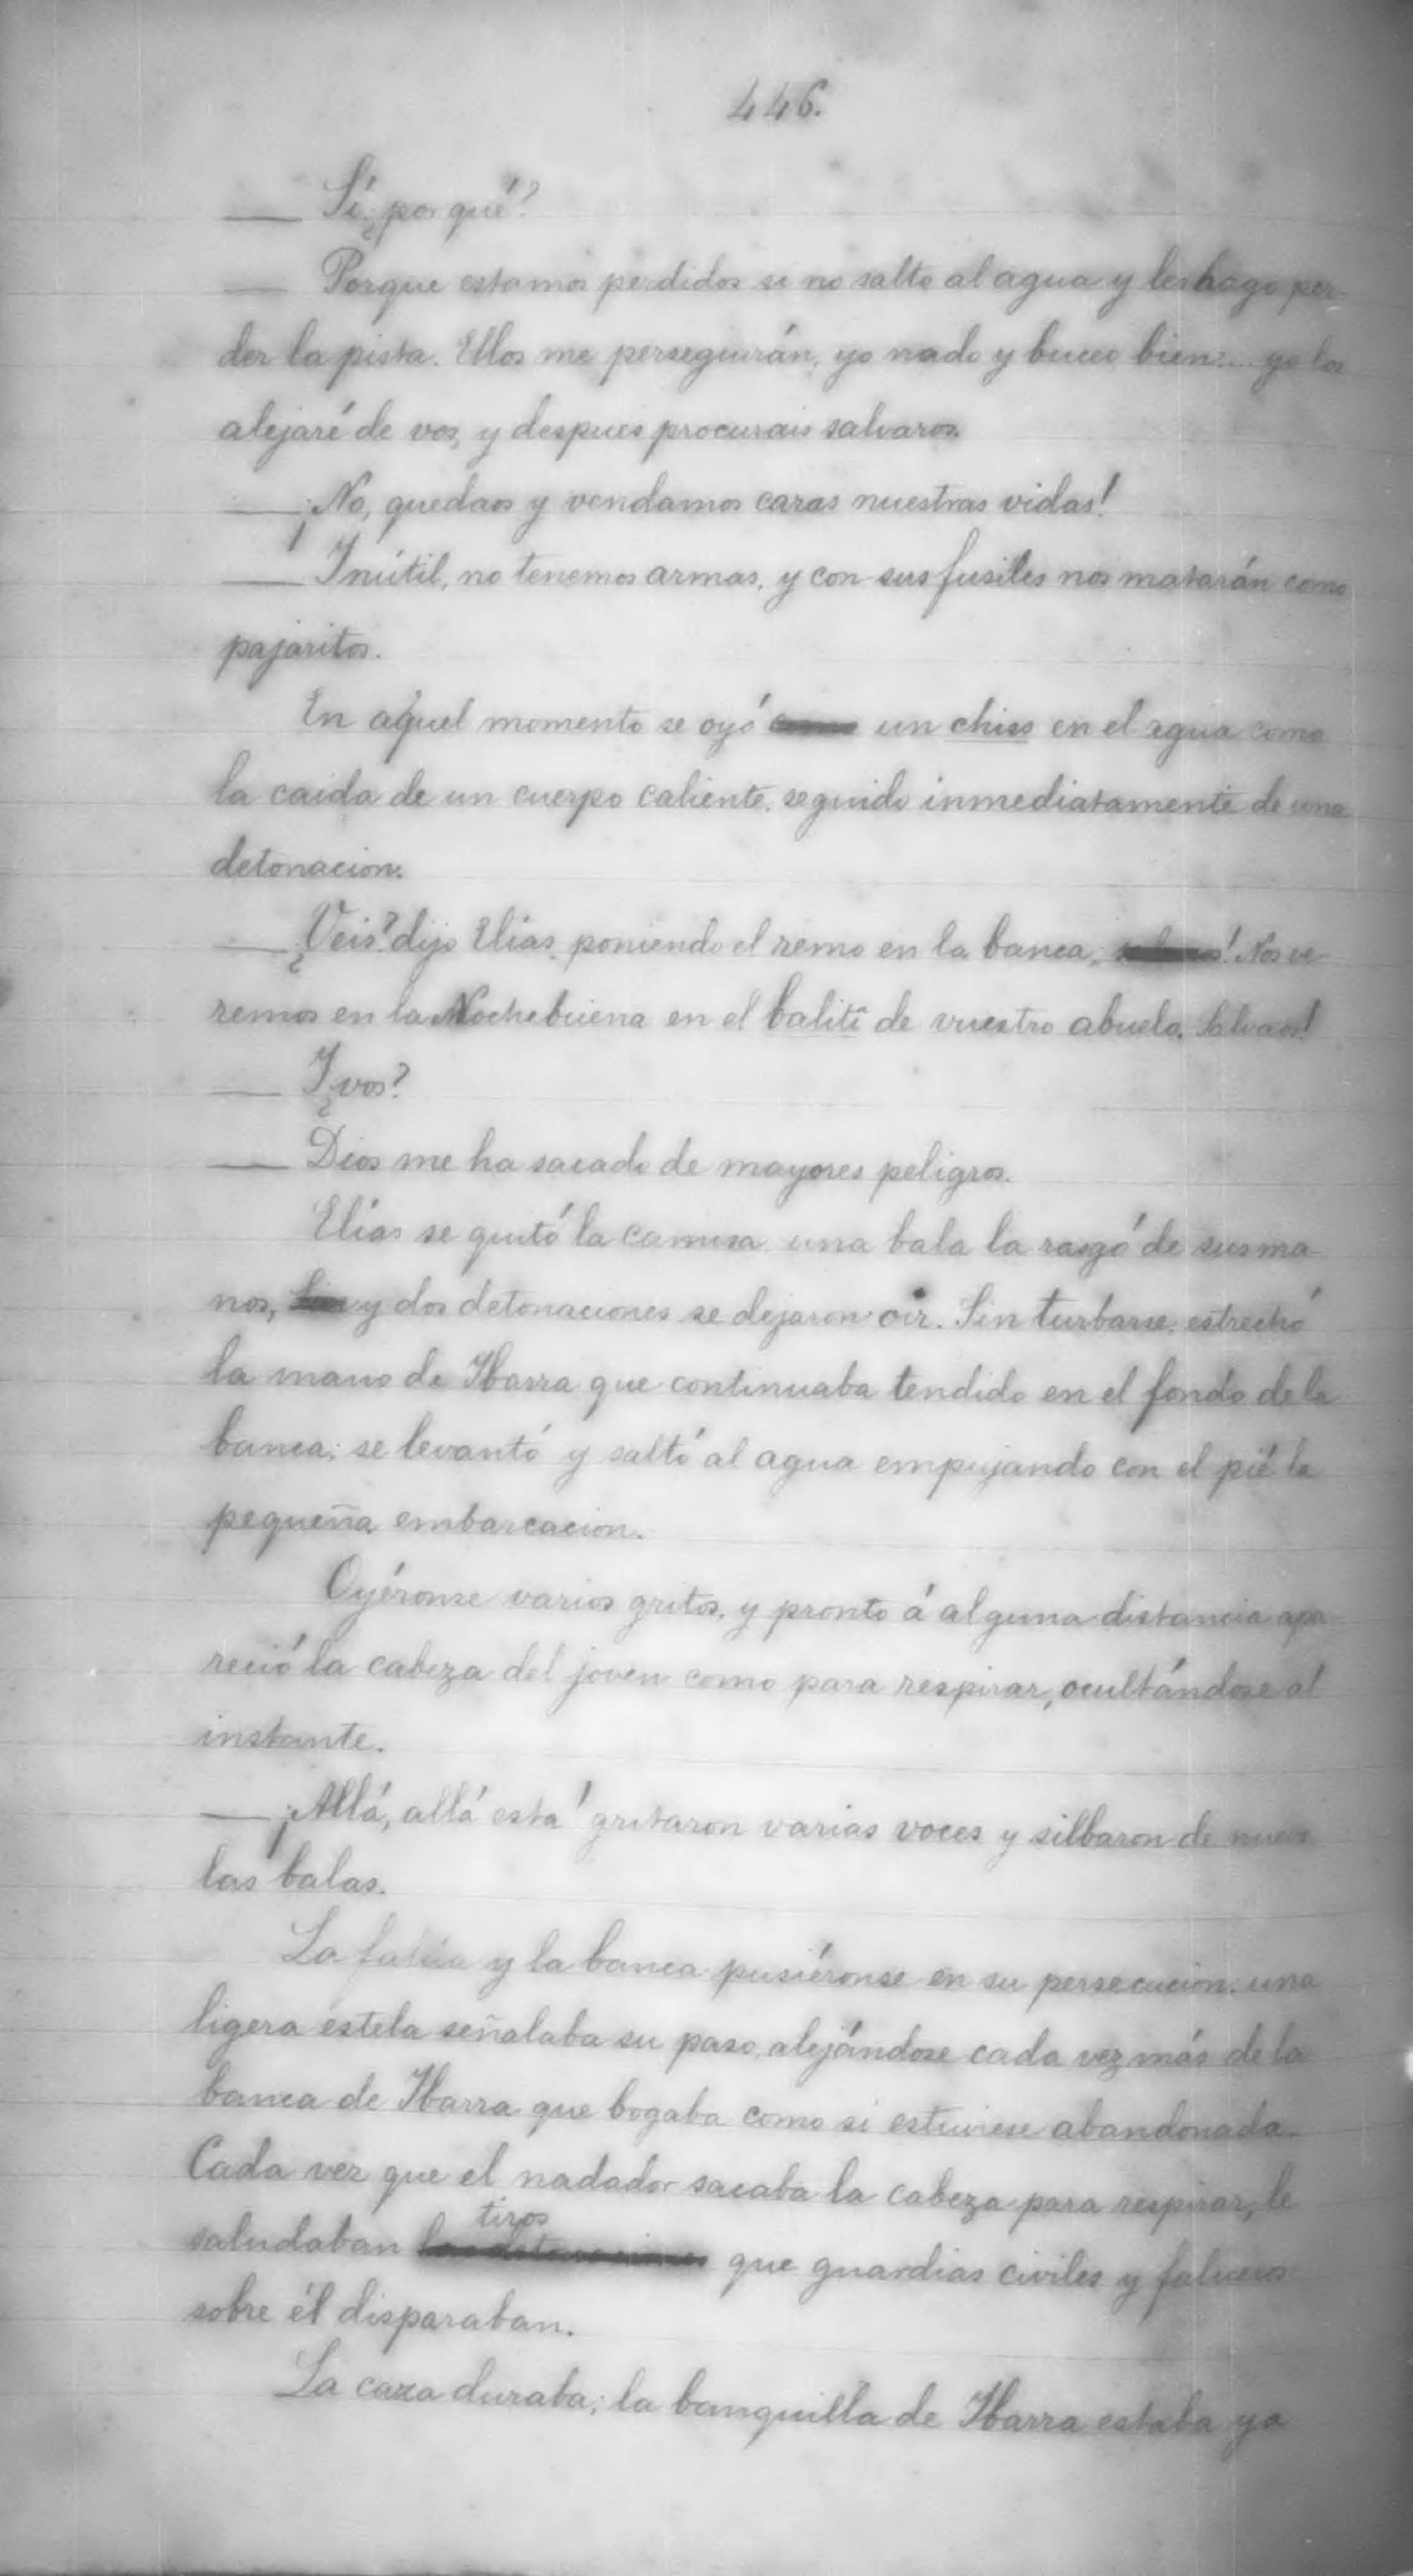 446.
— Sí ¿por qué?
— Porque estamos perdidos si no salto al agua y les hago per-
der la pista. Ellos me perseguirán, yo nado y buceo bien.... yo los
alejaré de vos, y despues procurais salvaros.
— ¡No, quedaos y vendamos caras nuestras vidas!
— Inútil, no tenemos armas, y con sus fusiles nos matarán como
pajaritos.
En aquel momento se oyó un chiss en el agua como
la caida de un cuerpo caliente, seguido inmediatamente de una
detonacion.
— ¿Veis? dijo Elías, poniendo el remo en la banca; ! Nos ve-
remos en la Nochebuena en el balití de vuestro abuelo. Salvaos!
— Y ¿vos?
— Dios me ha sacado de mayores peligros.
Elías se quitó la camisa, una bala la rasgó de sus ma-
nos, y dos detonaciones se dejaron oir. Sin turbarse, estrechó
la mano de Ibarra que continuaba tendido en el fondo de la
banca; se levantó y saltó al agua empujando con el pié la
pequeña embarcacion.
Oyéronse varios gritos, y pronto á alguna distancia apa-
reció la cabeza del joven como para respirar, ocultándose al
instante.
— ¡Allá, allá está! gritaron varias voces y silbaron de nuevo
las balas.
La falúa y la banca pusiéronse en su persecucion: una
ligera estela señalaba su paso, alejándose cada vez más de la
banca de Ibarra que bogaba como si estuviese abandonada.
Cada vez que el nadador sacaba la cabeza para respirar, le
tiros
saludaban las detonaciones que guardias civiles y falueros
sobre él disparaban.
La caza duraba; la banquilla de Ibarra estaba ya